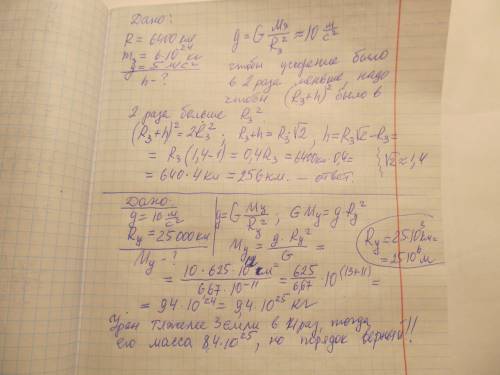 Дано:
R = 6400 км
m₃ = 6·10²⁴ кг
g = 5 м/с²
h - ?
g = G M₃/R₃² ≈ 10 м/с²
чтобы ускорение было
в 2 раза меньше, надо
чтобы (R₃+h)² было в
2 раза больше R₃².
(R₃+h)² = 2R₃² ; R₃+h = R₃√2 , h = R₃√2 - R₃ =
= R₃(1,4-1) = 0,4R₃ = 6400км·0,4= { √2 ≈ 1,4
= 640·4км = 256км. — ответ.
Дано:
g = 10 м/с²
Rу = 25000 км
Mу - ?
g = G Mу/R₃² ; GMу = g·Rу²
Mу = g·Rу²/G =
Rу = 25·10³км=
= 25·10⁶м
= 10·625·10¹² м²/6,67·10⁻¹¹ = 625/6,67·10^(13+11) =
= 94·10²⁴ = 9,4·10²⁵ кг
Уран тяжелее Земли в 14 раз, тогда
его масса 8,4·10²⁵, но порядок верный!!